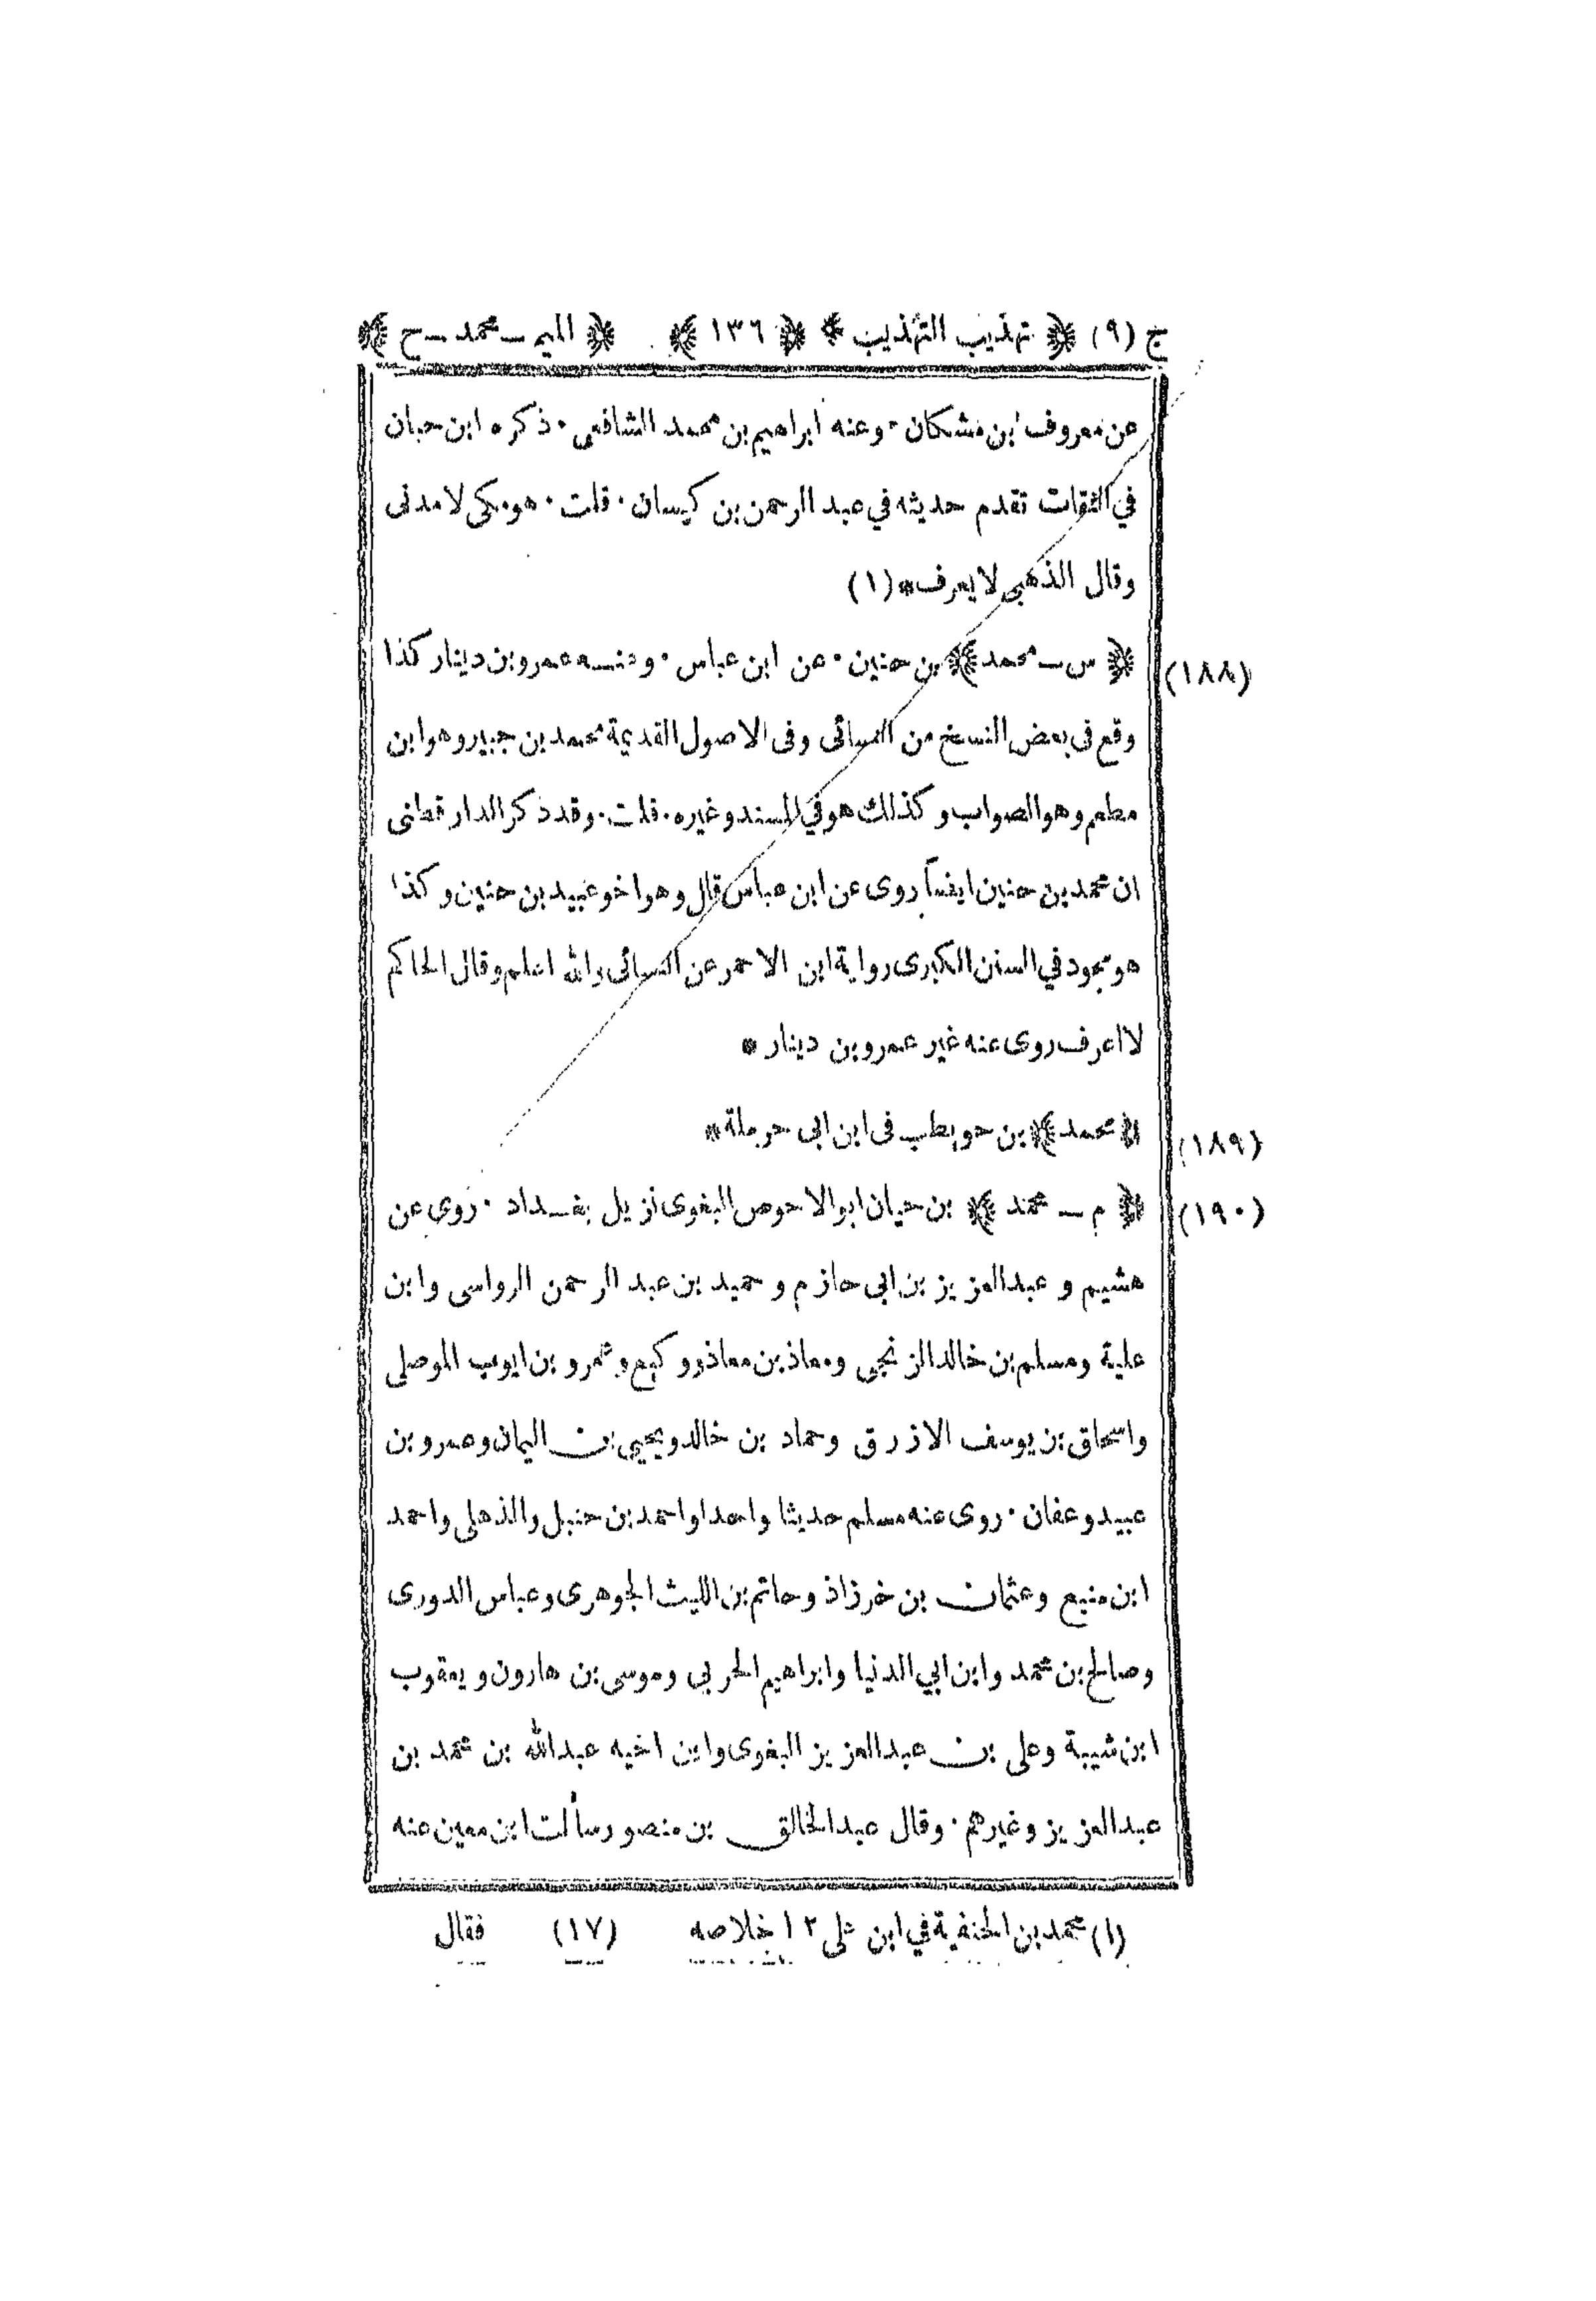 ج (٩) ﴿ تهذيب التهذيب * ﴿ ١٣٦ ﴾ ﴿ الميم ـ محمد ـ ح ﴾
عن معروف بن مشكان · وعنه ابراهيم بن محمد الشافعى · ذكره ابن حبان
في الثقات تقدم حديثه في عبد الرحمن بن كيسان · قلت · هو مكى لا مدنى
وقال الذهبى لا يعرف * (١)
(١٨٨) ﴿ س ـ محمد ﴾ بن حنين · عن ابن عباس · وعنه عمرو بن دينار كذا
وقع فى بعض النسخ من النسائى وفى الاصول القديمة محمد بن جبير وهو ابن
مطعم وهو الصواب وكذلك هو في المسند وغيره · قلت · وقد ذكر الدار قطنى
ان محمد بن حنين ايضاً روى عن ابن عباس قال وهو اخو عبيد بن حنين وكذا
هو مجود في السنن الكبرى رواية ابن الاحمر عن النسائى والله اعلم وقال الحاكم
لا اعرف روى عنه غير عمرو بن دينار *
(١٨٩) ﴿ محمد ﴾ بن حويطب فى ابن ابى حرملة *
(١٩٠) ﴿ م ـ محمد ﴾ بن حيان ابو الاحوص البغوى نزيل بغداد · روى عن
هشيم و عبد العزيز بن ابى حازم و حميد بن عبد الرحمن الرواسى وابن
علية ومسلم بن خالد الزنجى ومعاذ بن معاذ ووكيع وعمرو بن ايوب الموصلى
واسحاق بن يوسف الازرق وحماد بن خالد ويحيى بن اليمان وعمرو بن
عبيد وعفان · روى عنه مسلم حديثا واحدا واحمد بن حنبل والذهلى واحمد
ابن منيع وعثمان بن خرزاذ وحاتم بن الليث الجوهرى وعباس الدورى
وصالح بن محمد وابن ابي الدنيا وابراهيم الحربى وموسى بن هارون ويعقوب
ابن شيبة وعلى بن عبد العزيز البغوى وابن اخيه عبد الله بن محمد بن
عبد العزيز وغيرهم · وقال عبد الخالق بن منصور سألت ابن معين عنه
(١) محمد بن الحنفية في ابن على ١٢ خلاصه (١٧) فقال